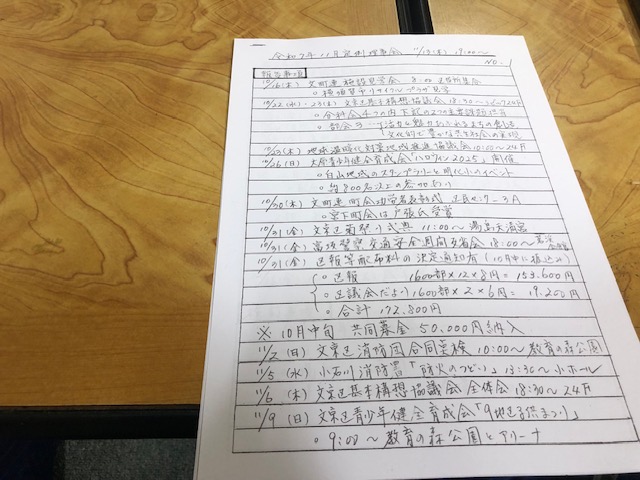 令和7年11月定例理事会 11/13(木) 19:00～
NO.1
報告事項
10/16(木) 文町連施設見学会 8:00 区役所集合
○ 横須賀市リサイクルプラザ見学
10/22(水)・23(木) 文京区基本構想協議会 18:30～ シビック24F
○ 分科会4つの内下記の2つの主要課題担当
○ 部会③ 活力と魅力あふれるまちの創造
文化的で豊かな共生社会の実現
10/23(木) 地球温暖化対策地域推進協議会 10:00～24F
10/26(日) 大原青少年健全育成会「ハロウィン2025」開催
○ 白山地域のスタンプラリーと明化小のイベント
○ 約800名以上の参加あり
10/30(木) 文町連町会功労者表彰式 区民センター3A
○ 宮下町会は戸張氏受賞
10/31(金) 文京区菊祭り式典 11:00～ 湯島天満宮
10/31(金) 富坂警察交通安全週間反省会 18:00～
10/31(金) 区報等配布料の決定通知有 (10月中に振込み)
○ 区報 1600部×12×8円=153,600円
○ 区議会だより 1600部×2×6円= 19,200円
○ 合計 172,800円
※ 10月中旬 共同募金 50,000円納入
11/2(日) 文京区消防団合同点検 10:00～ 教育の森公園
11/5(水) 小石川消防署「防火のつどい」13:30～小ホール
11/6(木) 文京区基本構想協議会 全体会 18:30～24F
11/9(日) 文京区青少年健全育成会「9地区子供まつり」
○ 9:00～ 教育の森公園とアリーナ